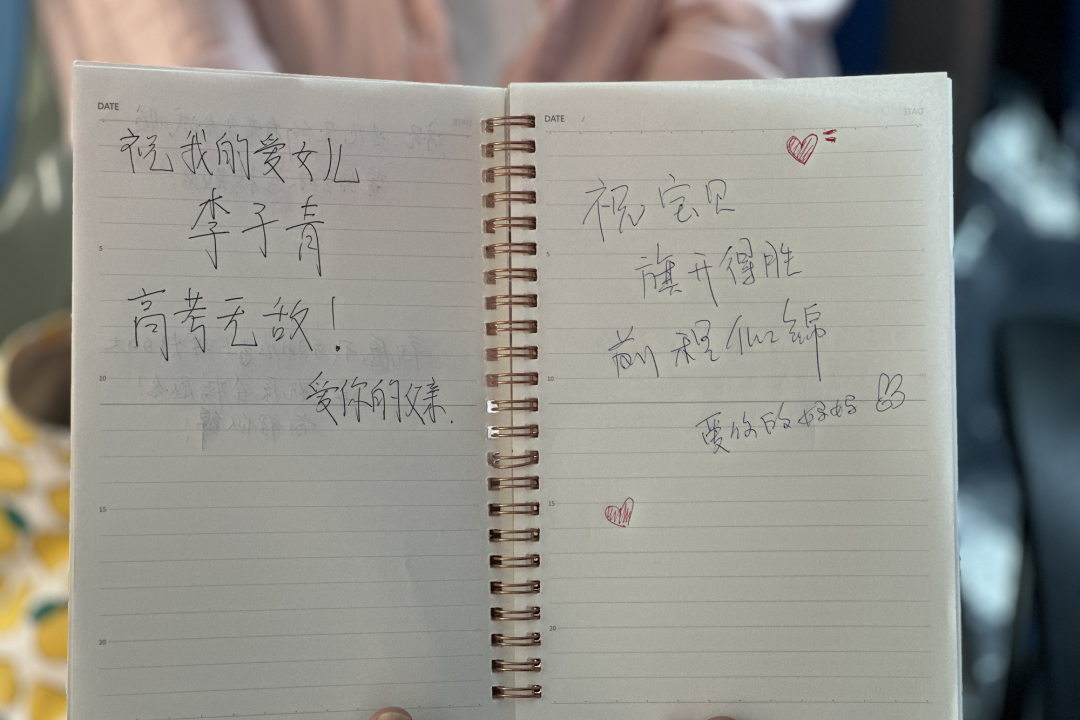 DATE
祝我的爱女儿
李子青
高考无敌！
爱你的父亲.
5
10
15
20
DATE
祝宝贝
旗开得胜
前程似锦
爱你的妈妈
5
10
15
20
DATE